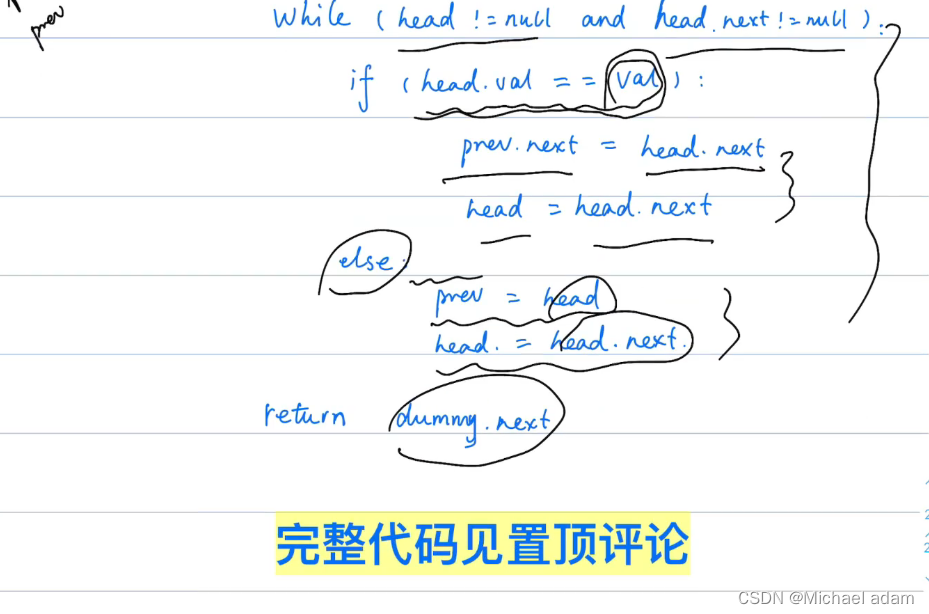 prev
while (head != null and head.next != null):
if (head.val == val):
prev.next = head.next
head = head.next
else:
prev = head
head. = head.next.
return dummy.next
完整代码见置顶评论
CSDN @Michael adam